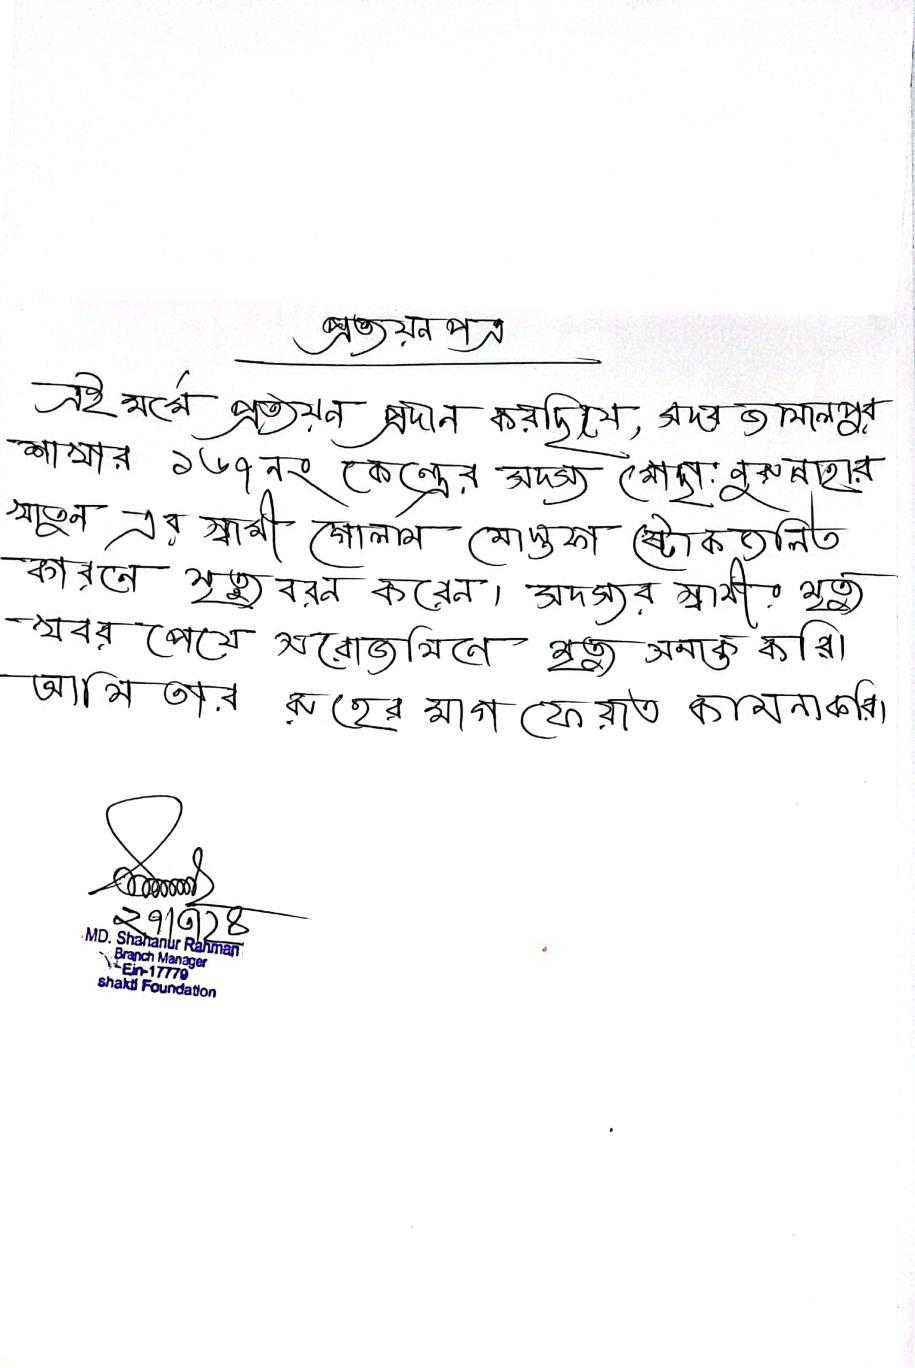 প্রত্যয়ন পত্র
এই মর্মে প্রত্যয়ন প্রদান করছি যে, সদর জামালপুর
শাখার ১৬৭ নং কেন্দ্রের সদস্য মোছা: নুরুন্নাহার
খাতুন এর স্বামী গোলাম মোস্তফা স্টোক জনিত
কারনে মৃত্যু বরন করেন। সদস্যর স্বামীর মৃত্যু
খবর পেয়ে সরোজমিনে মৃত্যু সনাক্ত করি।
আমি তার রুহের মাগফেরাত কামনা করি।
MD. Shahanur Rahman
Branch Manager
Ein-17779
shakti Foundation